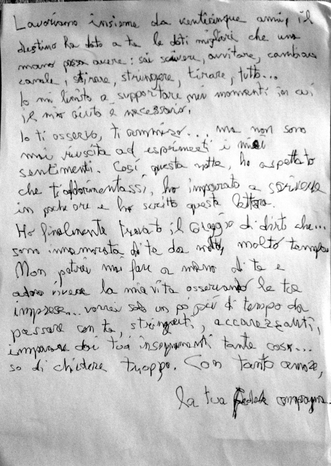 Lavoriamo insieme da venticinque anni, il
destino ha dato a te le doti migliori che una
mano possa avere: sai scrivere, avvitare, cambiare
canale, stirare, stringere, tirare, tutto...
Io mi limito a supportare nei momenti in cui
il mio aiuto è necessario.
Io ti osservo, ti ammiro... ma non sono
mai riuscita ad esprimerti i miei
sentimenti. Così questa notte, ho aspettato
che ti addormentassi, ho imparato a scrivere
in poche ore e ho scritto questa lettera.
Ho finalmente trovato il coraggio di dirti che...
sono innamorata di te da molto, molto tempo.
Non potrei mai fare a meno di te e
adoro vivere la mia vita osservando le tue
imprese... vorrei solo un po' più di tempo da
passare con te, stringerti, accarezzarti,
imparare dai tuoi insegnamenti tante cose...
so di chiedere troppo. Con tanto amore,
la tua fedele compagna.